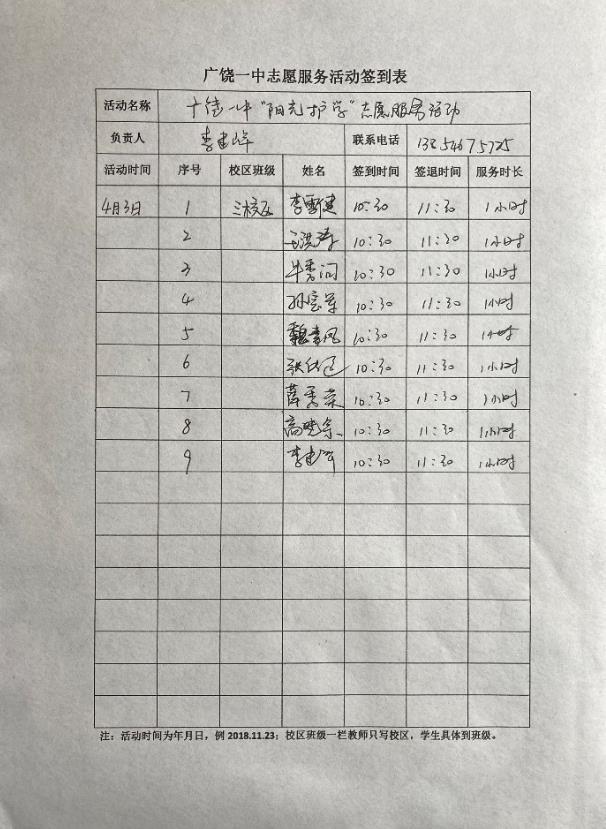 广饶一中志愿服务活动签到表
活动名称 广饶一中“阳光护学”志愿服务活动
负责人 李建 联系电话 13254675725
活动时间 序号 校区班级 姓名 签到时间 签退时间 服务时长
4月3日 1 三校区 李 10:30 11:30 1小时
2 王洪涛 10:30 11:30 1小时
3 牛秀 10:30 11:30 1小时
4 孙宝军 10:30 11:30 1小时
5 魏 10:30 11:30 1小时
6 张 10:30 11:30 1小时
7 薛秀荣 10:30 11:30 1小时
8 高 10:30 11:30 1小时
9 李建 10:30 11:30 1小时
注：活动时间为年月日，例 2018.11.23；校区班级一栏教师只写校区，学生具体到班级。